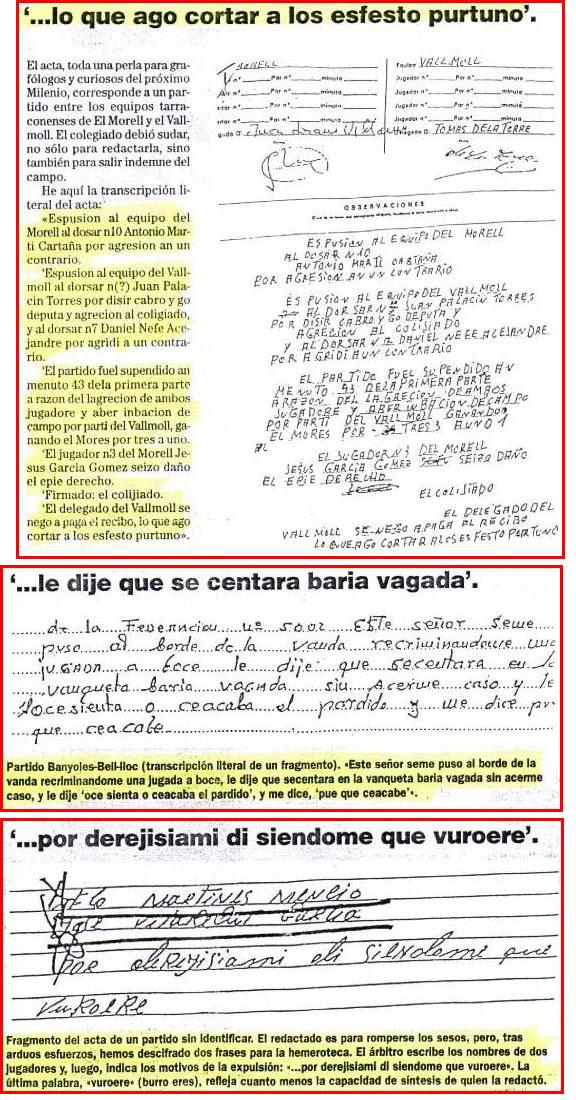 ‘...lo que ago cortar a los esfesto purtuno’.
El acta, toda una perla para gra-
fólogos y curiosos del próximo
Milenio, corresponde a un par-
tido entre los equipos tarra-
conenses de El Morell y el Vall-
moll. El colegiado debió sudar,
no sólo para redactarla, sino
también para salir indemne del
campo.
He aquí la transcripción li-
teral del acta:
«Espusion al equipo del
Morell al dosar n10 Antonio Mar-
ti Cartaña por agresion an un
contrario.
'Espusion al equipo del Vall-
moll al dorsar n(?) Juan Pala-
cin Torres por disir cabro y go
deputa y agrecion al coligiado,
y al dorsar n7 Daniel Nefe Ace-
jandre por agridi a un contra-
rio.
'El partido fuel supendido an
menuto 43 dela primera parte
a razon del lagrecion de ambos
jugadore y aber inbacion de
campo por parti del Vallmoll, ga-
nando el Mores por tres a uno.
'El jugador n3 del Morell Je-
sus Garcia Gomez seizo daño
el epie derecho.
'Firmado: el colijiado.
'El delegado del Vallmoll se
nego a paga el recibo, lo que ago
cortar a los esfesto purtuno».
MORELL
Equipo VALLMOLL
Jugador n° Por n° minuto
Jugador n° Por n° minuto
Jugador n° Por n° minuto
Jugador n° Por n° minuto
TOMAS DE LA TORRE
OBSERVACIONES
ESPUSION AL EQUIPO DEL MORELL
AL DOSAR N10
ANTONIO MARTI CARTAÑA
POR AGRESION AN UN CONTRARIO
ESPUSION AL EQUIPO DEL VALLMOLL
AL DORSAR N JUAN PALACIN TORRES
POR DISIR CABRO Y GO DEPUTA Y
AGRECION AL COLISIADO
Y AL DORSAR N 7 DANIEL NEFE ACESANDRE
POR AGRIDI AUN CONTRARIO
EL PARTIDO FUEL SUPENDIDO AN
MENUTO 43 DELA PRIMERA PARTE
ARAZON DEL LAGRECION DE AMBOS
JUGADORE Y ABER INBACION DE CAMPO
POR PARTI DEL VALLMOLL GANANDO
EL MORES POR TRES 3 AUNO 1
AL
EL JUGADOR N3 DEL MORELL
JESUS GARCIA GOMEZ SEIZO DAÑO
EL EPIE DERECHO
EL COLISIADO
EL DELEGADO DEL
VALLMOLL SE NEGO A PAGA EL RECIBO
LO QUE AGO CORTAR ALOS ESFESTO PURTUNO
‘...le dije que se centara baria vagada’.
de la Federacion nº 5002 Este señor seme
puso al borde de la vanda recriminandome una
jugada a boce le dije que secentara en la
vanqueta baria vagada sin acerme caso y le
dije ocesienta o ceacaba el pardido y me dice pue
que ceacabe
Partido Banyoles-Bell-lloc (transcripción literal de un fragmento). «Este señor seme puso al borde de la
vanda recriminandome una jugada a boce, le dije que secentara en la vanqueta baria vagada sin acerme
caso, y le dije ‘oce sienta o ceacaba el pardido’, y me dice, ‘pue que ceacabe’».
‘...por derejisiami di siendome que vuroere’.
MARTINES
por derejisiami di siendome que
vuroere
Fragmento del acta de un partido sin identificar. El redactado es para romperse los sesos, pero, tras
arduos esfuerzos, hemos descifrado dos frases para la hemeroteca. El árbitro escribe los nombres de dos
jugadores y, luego, indica los motivos de la expulsión: «...por derejisiami di siendome que vuroere». La
última palabra, «vuroere» (burro eres), refleja cuanto menos la capacidad de síntesis de quien la redactó.